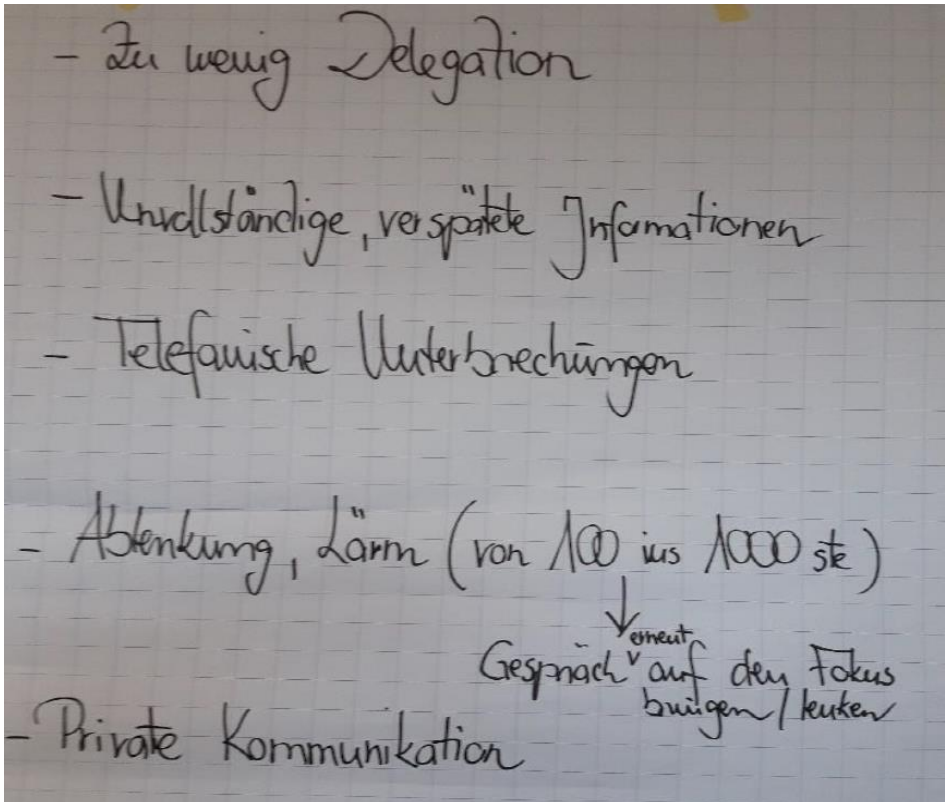 - Zu wenig Delegation
- Unvollständige, verspätete Informationen
- Telefonische Unterbrechungen
- Ablenkung, Lärm (von 100 ins 1000 ste)
↓
Gespräch erneut auf den Fokus
bringen / lenken
- Private Kommunikation